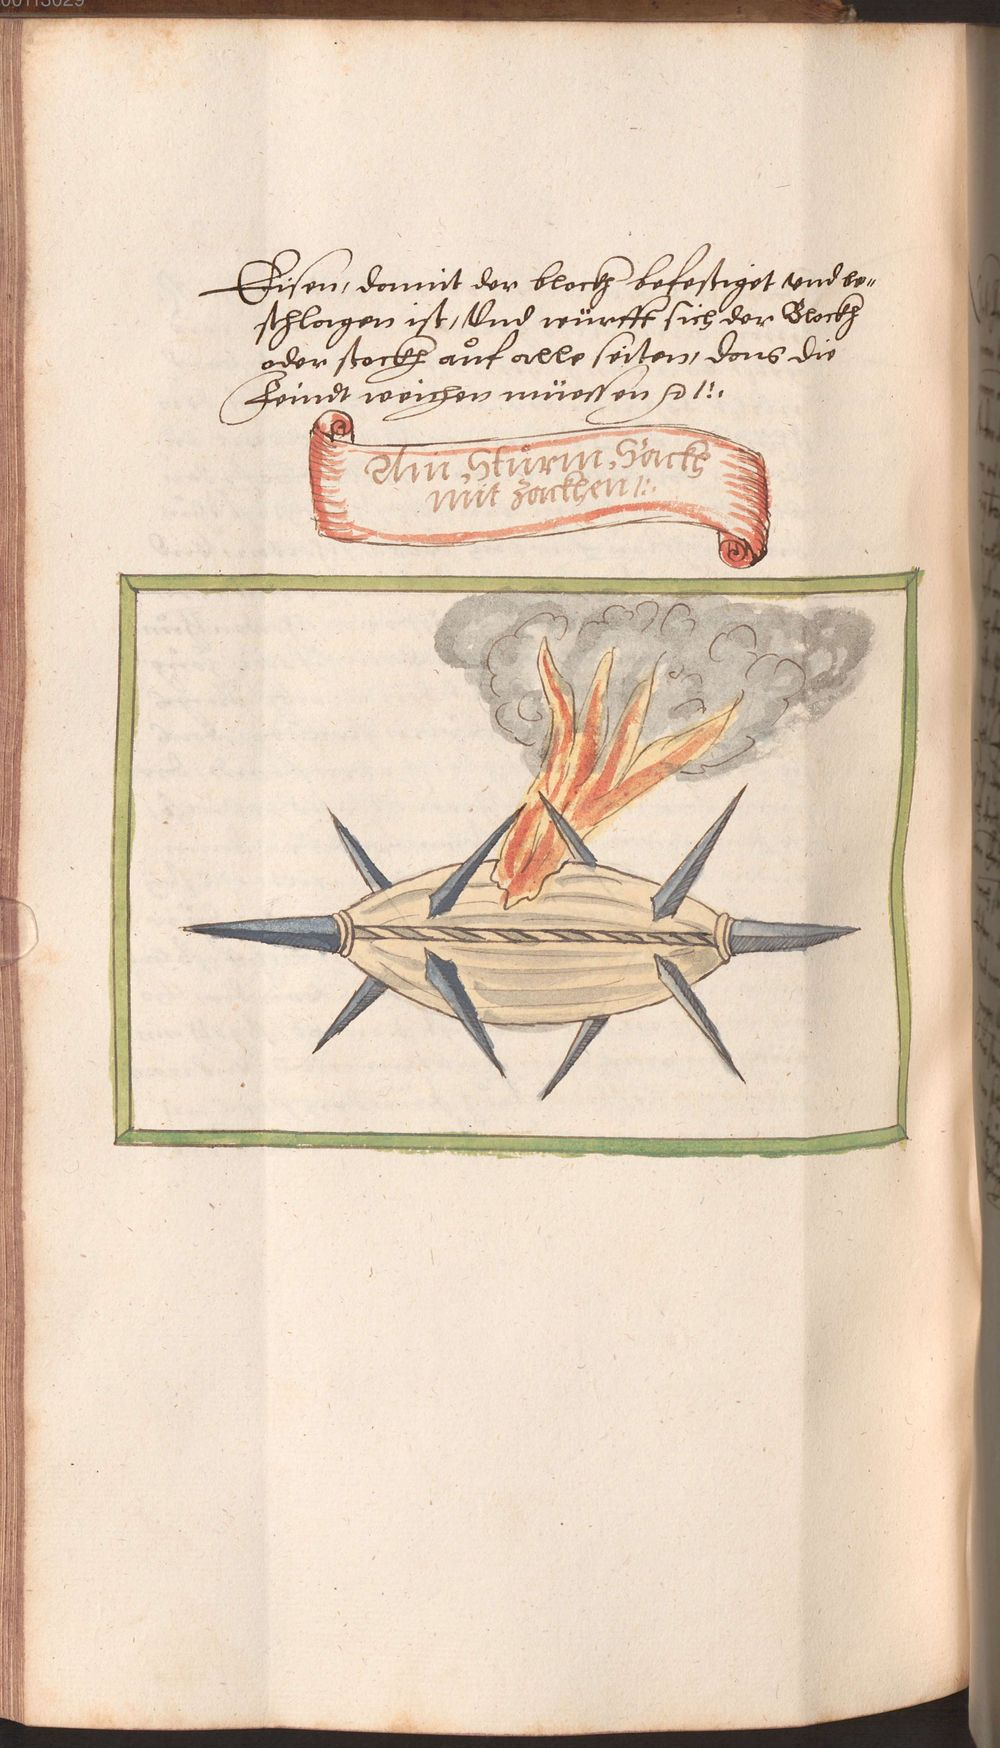 Eisen, damit der blockh befestiget vnd be-
schlagen ist, Vnd würfft sich der Blockh
oder stockh auf alle seiten, dans die
Feindt weichen müessen
Ain Sturm Sackh
mit zackhen